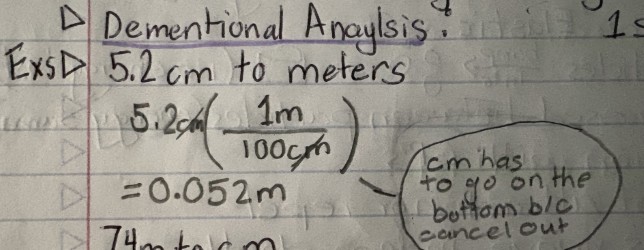 Dementional Anaylsis:
Exs 5.2cm to meters
5.2cm(1m/100cm)
=0.052m
cm has
to go on the
bottom b/c
cancel out
74m to cm